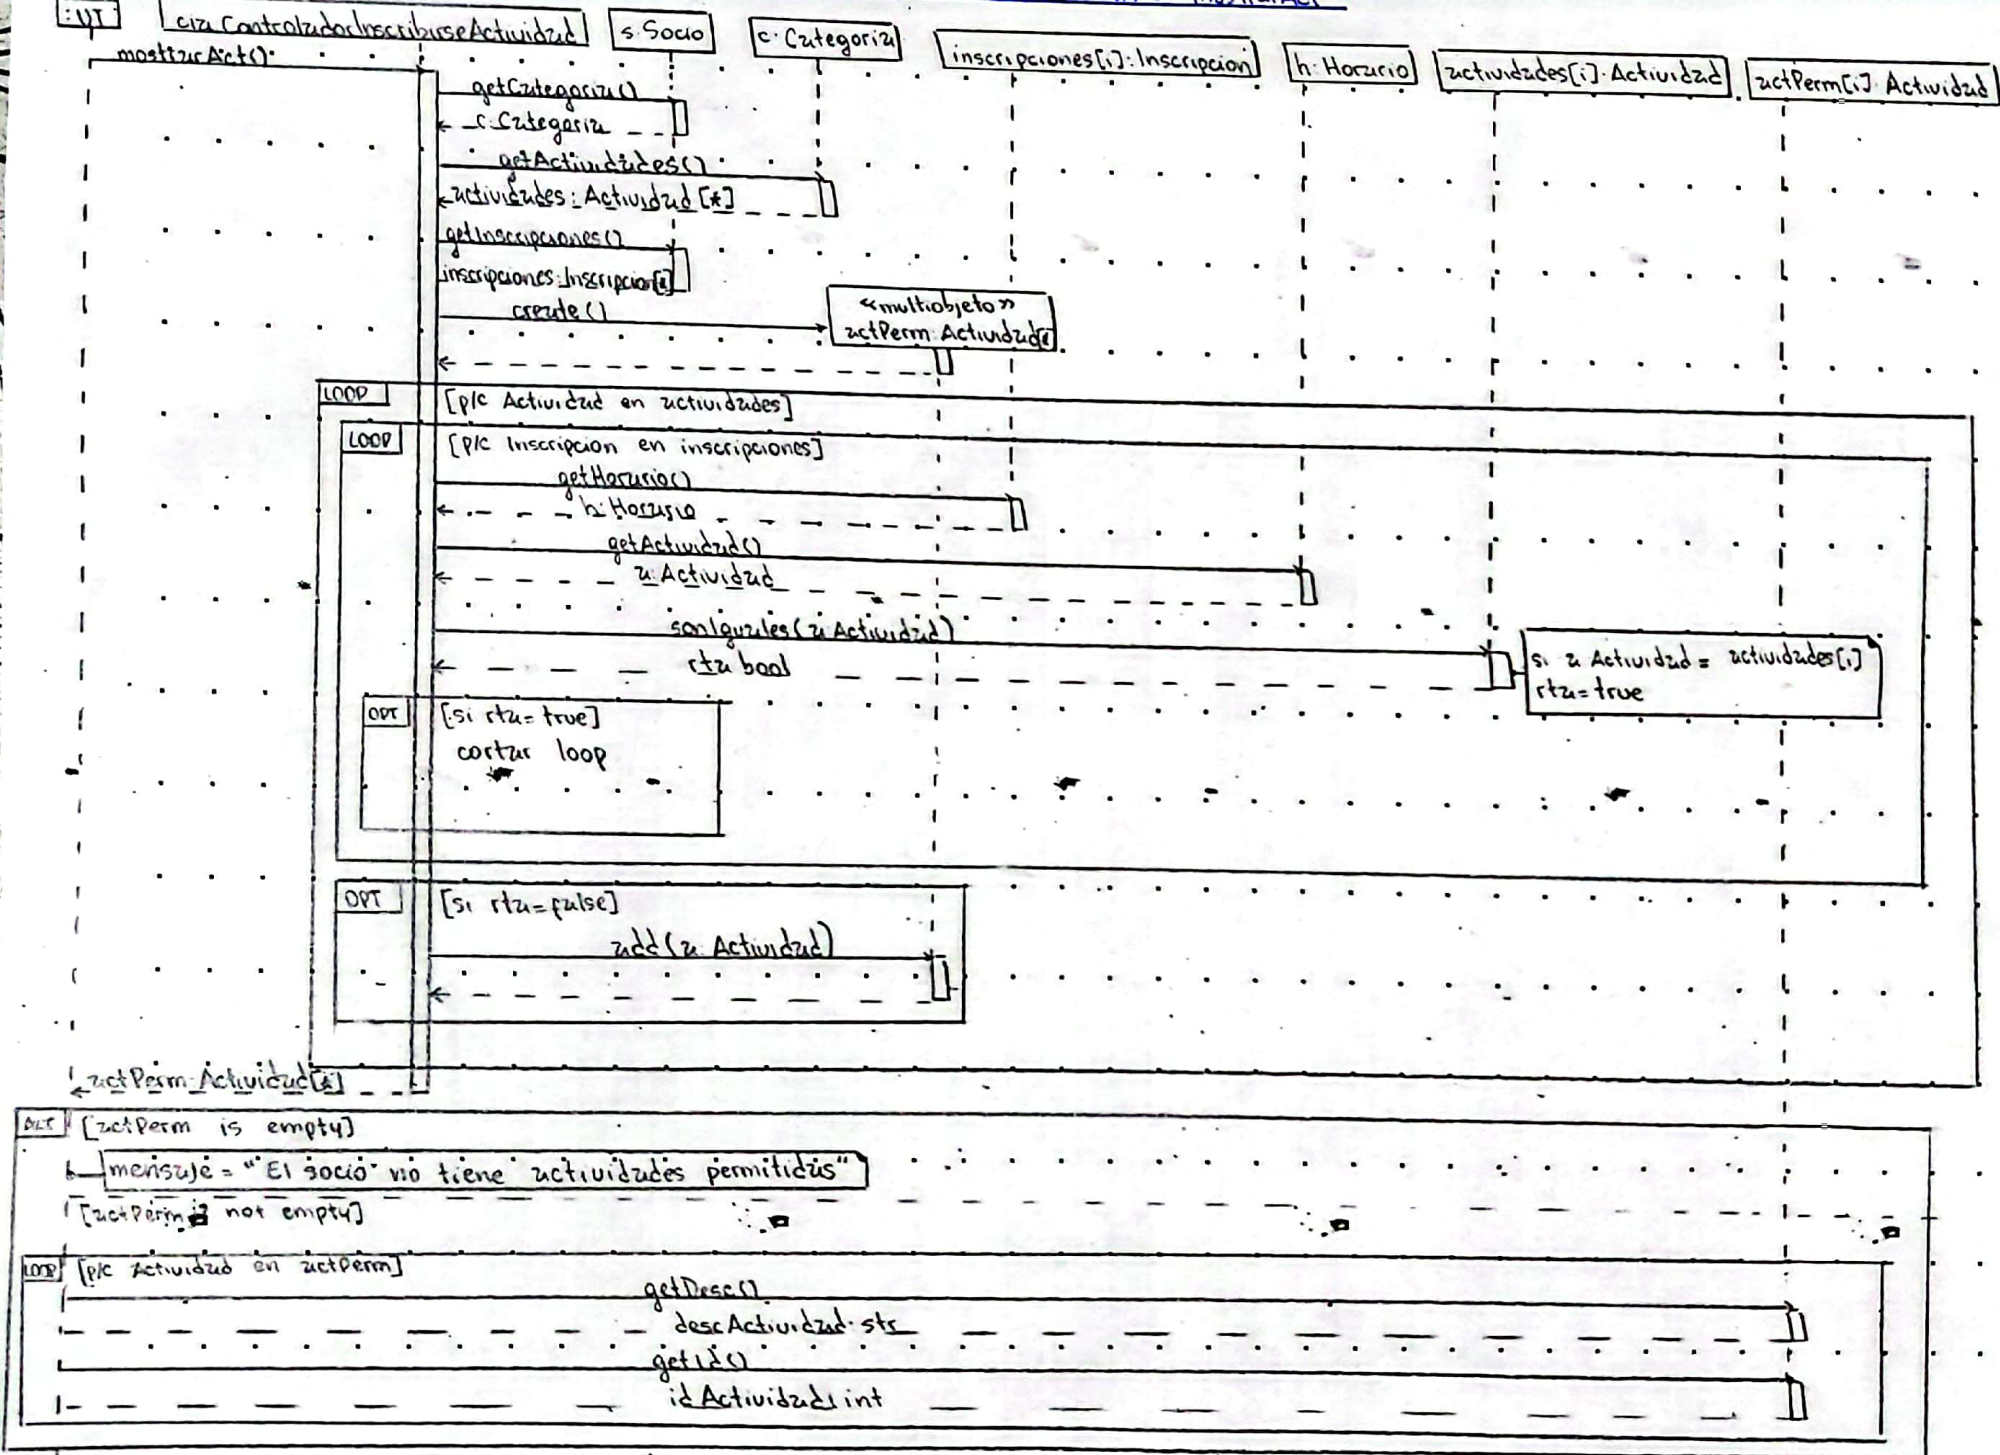 :UI
cia:ControladorInscribirseActividad
s:Socio
c:Categoria
inscripciones[i]:Inscripcion
h:Horario
actividades[i]:Actividad
actPerm[i]:Actividad
mostrarAct()
getCategoria()
c:Categoria
getActividades()
actividades:Actividad[*]
getInscripciones()
inscripciones:Inscripcion[*]
create()
«multiobjeto»
actPerm:Actividad[*]
LOOP
[p/c Actividad en actividades]
LOOP
[p/c Inscripcion en inscripciones]
getHorario()
h:Horario
getActividad()
a:Actividad
sonIguales(a:Actividad)
rta:bool
si a:Actividad = actividades[i]
rta=true
OPT
[si rta=true]
cortar loop
OPT
[si rta=false]
add(a:Actividad)
actPerm:Actividad[*]
ALT
[actPerm is empty]
mensaje = "El socio no tiene actividades permitidas"
[actPerm is not empty]
LOOP
[p/c Actividad en actPerm]
getDesc()
descActividad:str
getId()
idActividad:int